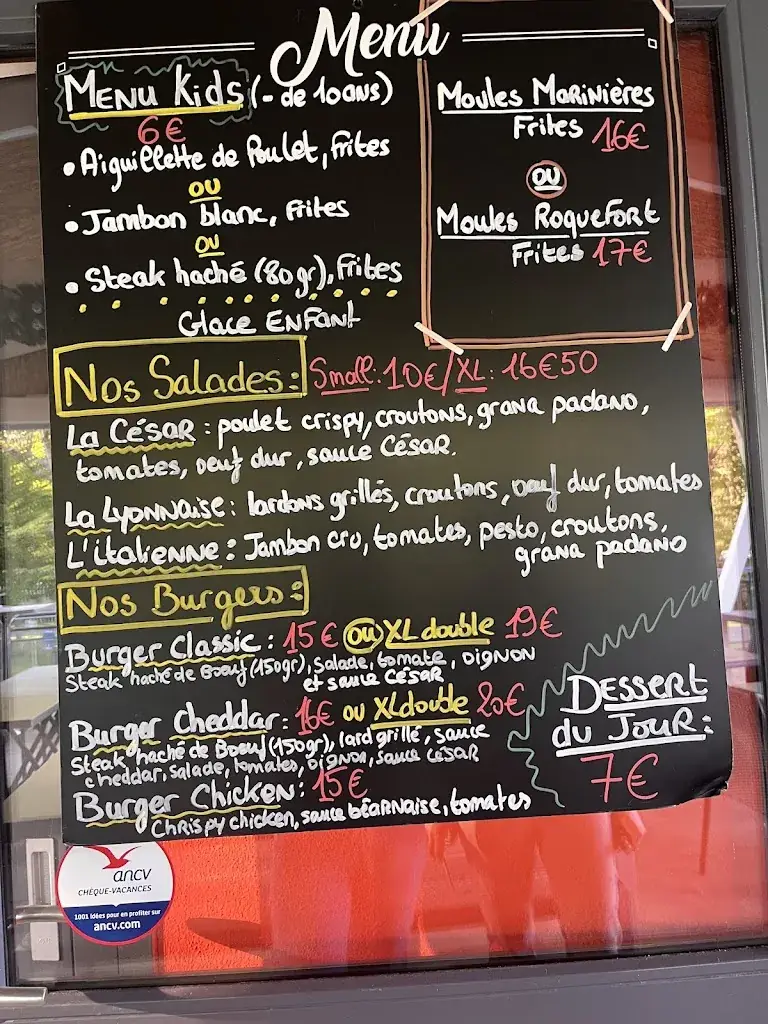 Menu
MENU Kids (- de 10ans)
6€
• Aiguillette de Poulet, frites
ou
• Jambon blanc, frites
ou
• Steak haché (80gr), frites
Glace ENFANT
Moules Marinières
Frites 16€
ou
Moules Roquefort
Frites 17€
Nos Salades: Small: 10€/XL: 16€50
La César : poulet crispy, croutons, grana padano,
tomates, oeuf dur, sauce César.
La Lyonnaise: lardons grillés, croutons, oeuf dur, tomates
L'italienne : Jambon cru, tomates, pesto, croutons,
grana padano
Nos Burgers:
Burger Classic : 15€ ou XL double 19€
Steak haché de Boeuf (150gr), salade, tomate, oignon
et sauce César
Burger Cheddar: 16€ ou XL double 20€
Steak haché de Boeuf (150gr), lard grillé, sauce
cheddar, salade, tomates, oignon, sauce César
Burger Chicken: 15€
Chrispy chicken, sauce béarnaise, tomates
Dessert
du Jour:
7€
ancv
CHÈQUE-VACANCES
1001 idées pour en profiter sur
ancv.com